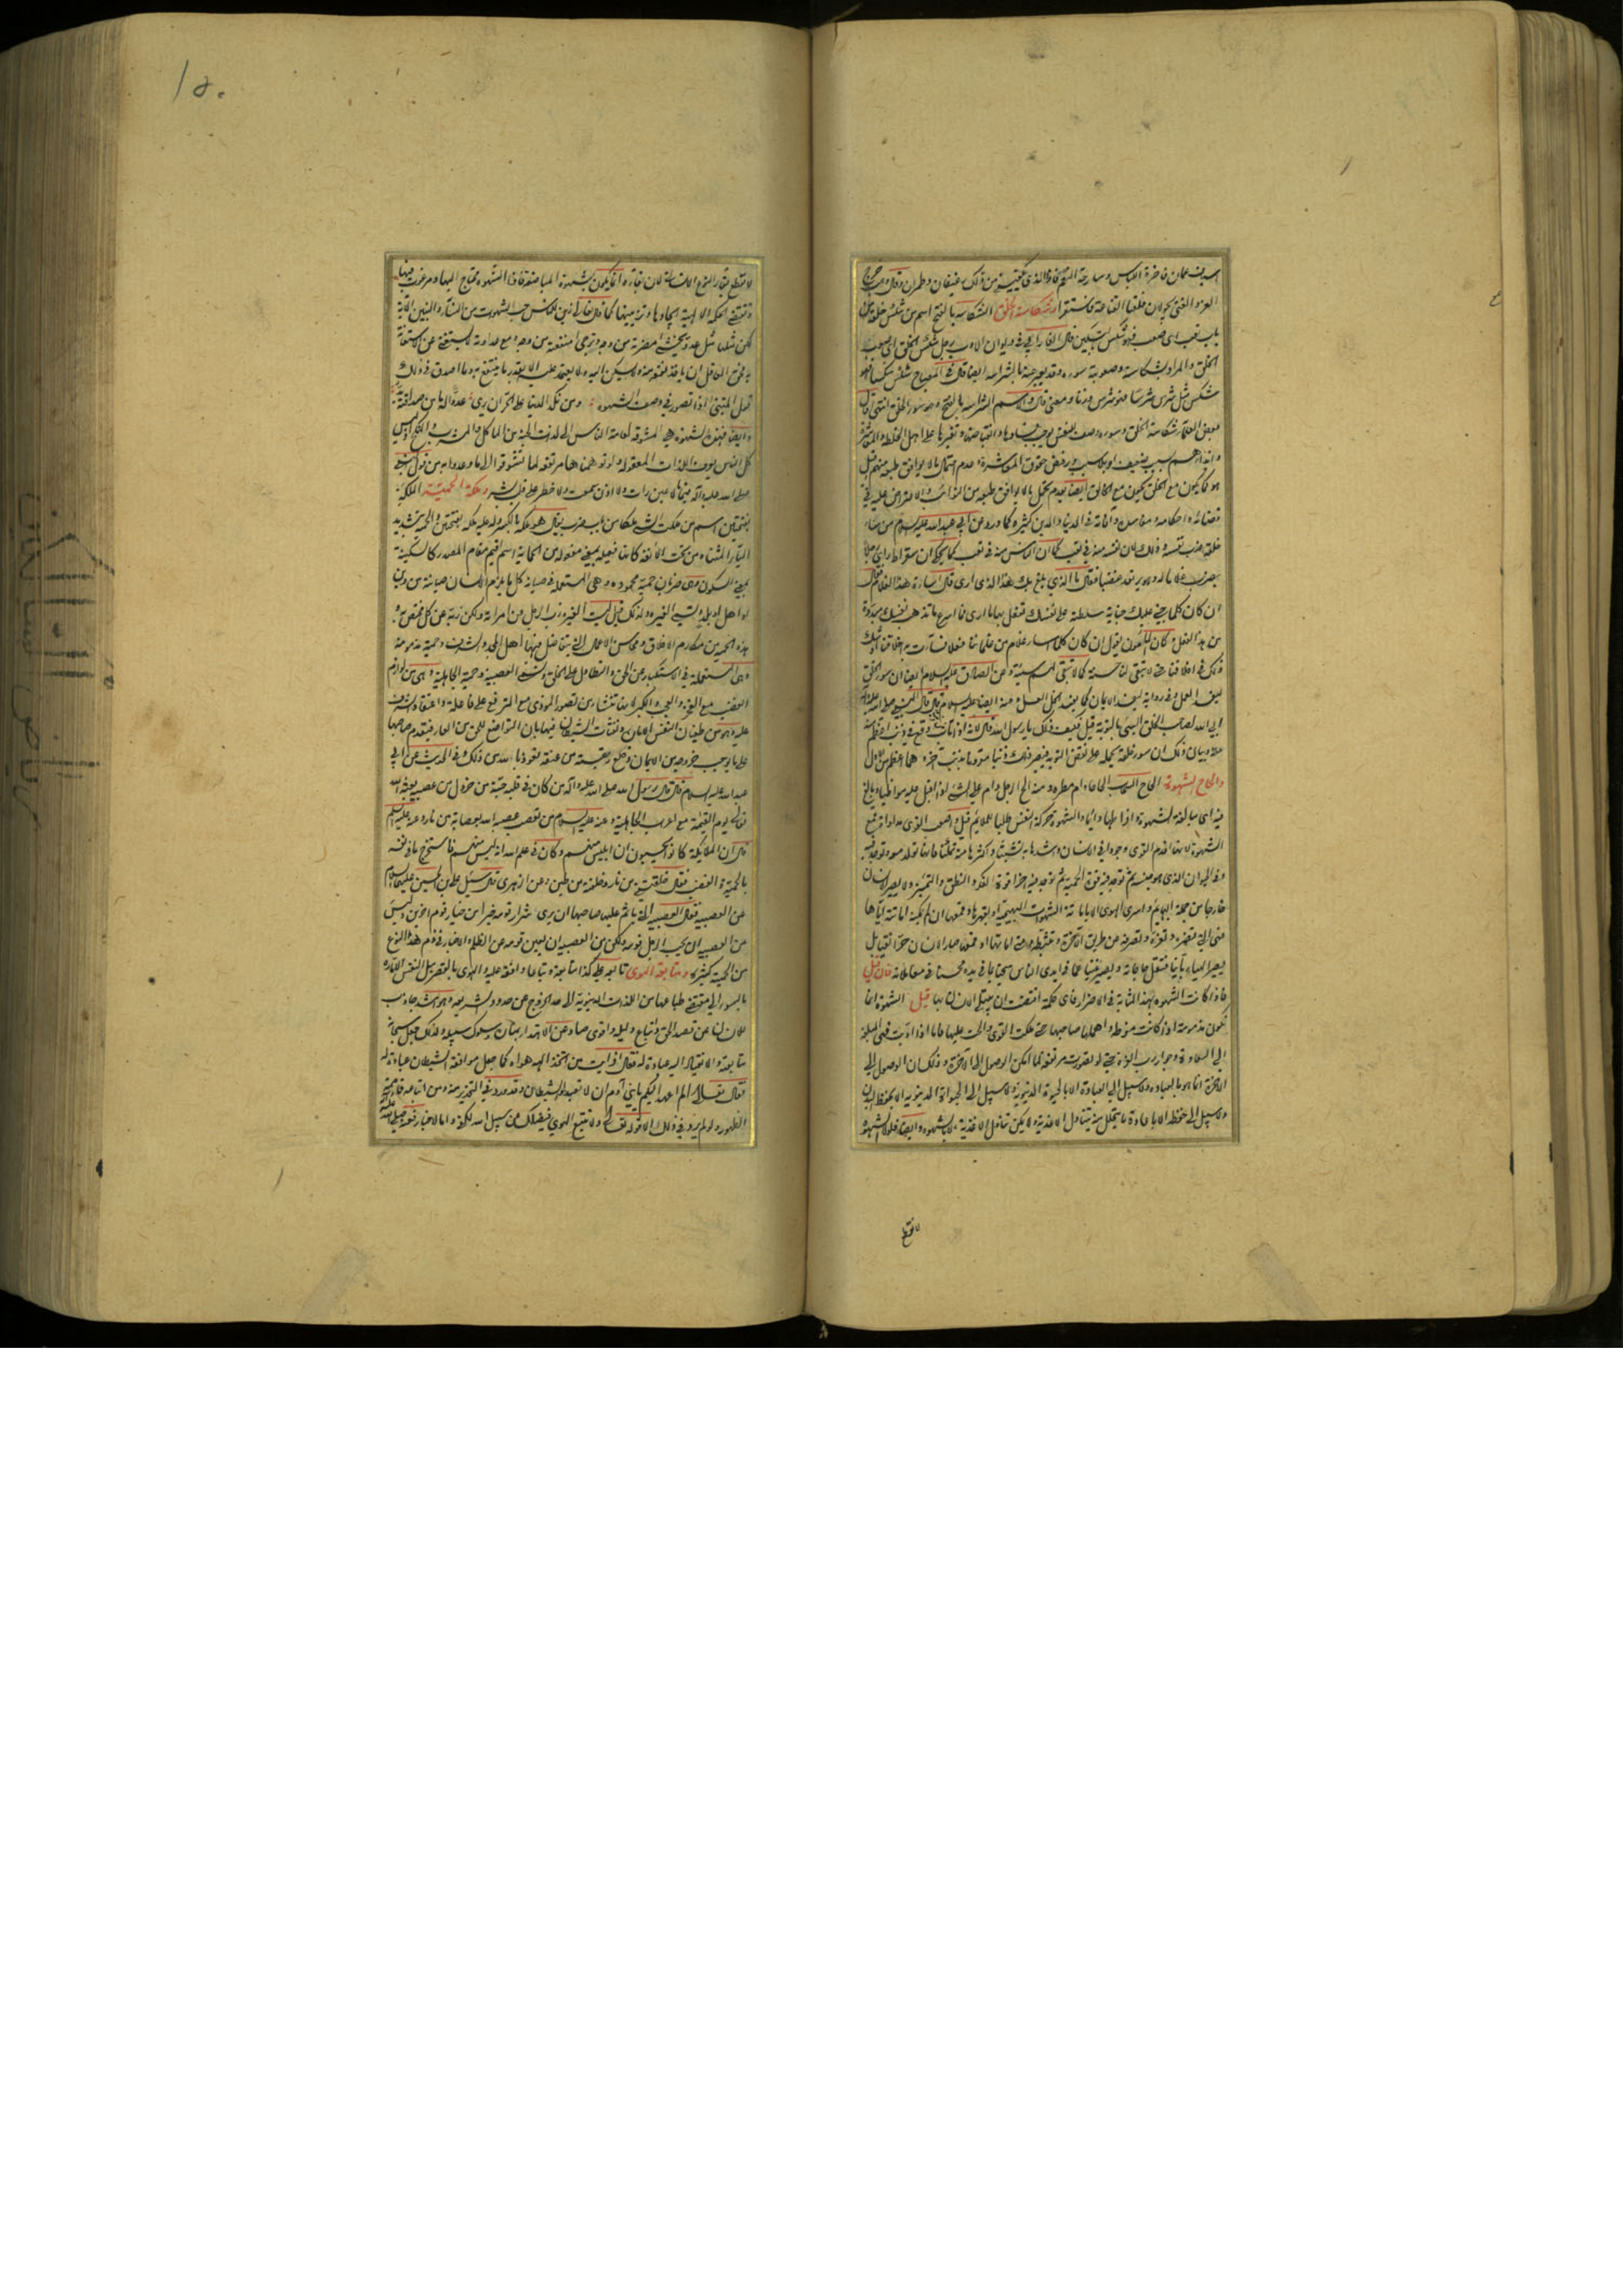 العز والغنى يجولان فلقيا القناعة فاستقرا وشكاسة الخلق الشكاسة بالفتح اسم من شكس خلقه من
باب تعب اى صعب فهو شكس بالتسكين قال الفارابي في ديوان الادب رجل شكس الخلق اى صعب
الخلق والمراد بشكاسته وصعوبته سوءه وقد يعبر عنه بالشراسة ايضا قال في المصباح شكس شكسا فهو
شكس مثل شرس شرسا فهو شرس وزنا ومعنى قال والاسم الشراسة بالفتح وهو سوء الخلق انتهى وقال
بعض العلماء شكاسة الخلق وسوءه وصف للنفس يوجب فسادها وانقباضها وتغيرها على اهل الخلطة والمعاشرة
وايذاءهم بسبب ضعيف او بلا سبب ورفض حقوق المعاشرة وعدم احتمال ما لا يوافق طبعه منهم قيل
هو كما يكون مع الخلق يكون مع الخالق ايضا بعدم تحمل ما لا يوافق طبعه من النوائب والاعتراض عليه في
قضائه واحكامه ومفاسده وآفاته في الدنيا والدين كثيرة كما ورد عن ابي عبد الله عليه السلام من ساء
خلقه عذب نفسه وذلك لان نفسه منه في تعب كما ان الناس منه في تعب كما يحكى ان سقراط راى رجلا
يضرب غلاما له وهو يرتعد غضبا فقال ما الذي بلغ بك هذا الذى ارى قال اساءة هذا الغلام فقال
ان كان كلما يجني عليك جناية سلطته على نفسك تفعل بها ما ارى فما اسرع ما تذهب نفسك مبددة
من هذا الفعل وكان المأمون يقول ان كان كلما اساء غلام من غلماننا فعلا ساءت به اخلاقنا اوشك
ذلك في اخلاقنا حتى لا تبقى لنا حسنة كما لا تبقى لهم سيئة وعن الصادق عليه السلام ايضا ان سوء الخلق
ليفسد العمل وفي رواية ليفسد الايمان كما يفسد الخل العسل وعنه ايضا عليه السلام قال قال النبي صلى الله عليه وآله
ابى الله لصاحب الخلق السيئ بالتوبة قيل فكيف ذلك يا رسول الله قال لانه اذا تاب من ذنب وقع في ذنب اعظم منه
وبيان ذلك ان سوء خلقه يحمله على نقض التوبة فيصير ذلك ذنبا مقرونا بذنب آخر وهما اعظم من الاول
والحاح الشهوة الحاح السحاب الحاحا دام مطره ومنه الح الرجل دام على الشئ اذا اقبل عليه مواظبا وبالغ
فيه اى مبالغة الشهوة اذا طلبها دائما والشهوة حركة النفس طلبا للملايم قيل واصعب القوى مداواة قمع
الشهوة لانها اقدم القوى وجودا في الانسان واشدها به تشبثا واكثرها منه تمكنا فانها تولد معه وتوجد فيه
وفي الحيوان الذى هو جنسه ثم توجد فيه قوة الحمية ثم توجد فيه اخرا قوة الفكر والنطق والتميز ولا يصير الانسان
خارجا من جملة البهائم واسرى الهوى الا باماتة الشهوات البهيمية او بقهرها وقمعها ان لم يمكنه اماتته اياها
فهي التي تضره وتغره وتصرفه عن طريق الآخرة وتثبطه ومتى اماتها او قمعها صار الانسان حرا نقيا بل
يصير الهيا ربانيا فتقل حاجاته ويصير غنيا عما في ايدى الناس سخيا بما في يده محسنا في معاملاته فان قيل
فاذا كانت الشهوة بهذه المثابة في الاضرار فاى حكمة اقتضت ان يبتلى الانسان بها قيل الشهوة انما
تكون مذمومة اذا كانت مفرطة واهملها صاحبها حتى ملكت القوى والحت عليها فاما اذا ادبت فهى المبلغة
الى السعادة وجوار رب العزة حتى لو تصورت مرتفعة لما امكن الوصول الى الآخرة وذلك ان الوصول الى
الآخرة انما هو بالعبادة ولا سبيل الى العبادة الا بالحيوة الدنيوية ولا سبيل الى الحيوة الدنيوية الا بحفظ البدن
ولا سبيل الى حفظه الا باعادة ما يتحلل منه بتناول الاغذية ولا يمكن تناول الاغذية الا بالشهوة وايضا فلولا الشهوة
لانقطع
١٥٠
لانقطع بقاء النوع الانسانى لان بقاءه انما يكون بشهوة المباضعة فاذا الشهوة محتاج اليها ومرغوب فيها
وتقتضى الحكمة الالهية ايجادها وتزيينها كما قال تعالى زين للناس حب الشهوات من النساء والبنين الآية
لكن مثلها مثل عدو يخشى مضرته من وجه وترجى منفعته من وجه ومع عداوته لا يستغنى عن الاستعانة
به فحق العاقل ان ياخذ نفعه منه ولا يسكن اليه ولا يعتمد عليه الا بقدر ما ينتفع به وما اصدق في ذلك
قول المتنبى اذا تصور في وصف الشهوة ومن نكد الدنيا على الحر ان يرى عدوا له ما من صداقته بد
وايضا فهذه الشهوة هي المشوقة لعامة الناس الى لذات الجنة من المآكل والمشرب والمنكح اذ ليس
كل الناس يعرف اللذات المعقولة ولو توهمناها مرتفعة لما تشوقوا الى ما وعدوا به من قول النبي
صلى الله عليه وآله فيها ما لا عين رات ولا اذن سمعت ولا خطر على قلب بشر وملكة الحمية الملكة
بفتحتين اسم من ملكت الشئ ملكا من باب ضرب يقال هو ملكه بالكسر وله عليه ملكة بفتحتين والحمية بتشديد
الياء المثناة من تحت الانفة كانها فعيلة بمعنى مفعولة من الحماية اسم اقيم مقام المصدر كالسكينة
بمعنى السكون وهى ضربان حمية محمودة وهى المستعملة في صيانة كل ما يلزم الانسان صيانته من دين
او اهل او بلد وتسمى الغيرة ولذلك قيل ليست الغيرة ذب الرجل عن امراته ولكن ذبه عن كل مختص به
هذه الحمية من مكارم الاخلاق ومحاسن الاعمال التي يتفاضل فيها اهل المجد والشرف وحمية مذمومة
وهى المستعملة في الاستكبار عن الحق والتطاول على الخلق وتسمى العصبية وحمية الجاهلية وهى من لوازم
الغضب مع الفخر والعجب والكبر لانها تنشا من تصور الموذى مع الترفع على فاعله واعتقاد الشرف
عليه وهو من طغيان النفس الامارة ونفثات الشيطان فيها بان التواضع للحق من العار فيتقدم صاحبها
على ما يوجب خروجه من الايمان وخلع ربقته من عنقه نعوذ بالله من ذلك وفي الحديث عن ابي
عبد الله عليه السلام قال قال رسول الله صلى الله عليه وآله من كان في قلبه حبة من خردل من عصبية بعثه الله
تعالى يوم القيمة مع اعراب الجاهلية وعنه عليه السلام من تعصب عصبه الله بعصابة من نار وعنه عليه السلم
قال ان الملائكة كانوا يحسبون ان ابليس منهم وكان في علم الله انه ليس منهم فاستخرج ما في نفسه
بالحمية والغضب فقال خلقتني من نار وخلقته من طين وعن الزهرى قال سئل علي بن الحسين عليهما السلام
عن العصبية فقال العصبية التي ياثم عليها صاحبها ان يرى شرار قومه خيرا من خيار قوم آخرين وليس
من العصبية ان يحب الرجل قومه ولكن من العصبية ان يعين قومه على الظلم والاخبار في ذم هذا النوع
من الحمية كثيرة ومتابعة الهوى تابعه على كذا متابعة وتباعا وافقه عليه والهوى بالقصر ميل النفس الامارة
بالسوء الى مقتضى طباعها من اللذات الدنيوية الى حد الخروج عن حدود الشريعة وهو اشد جاذب
للانسان عن قصد الحق واتباع دليله واقوى صاد عن الاهتداء بمنار سلوك سبيله ولذلك جعل سبحانه
متابعته والانقياد اليه عبادة له فقال افرايت من اتخذ الهه هواه كما جعل موافقة الشيطان عبادة له
فقال تعالى الم اعهد اليكم يا بني آدم ان لا تعبدوا الشيطان وقد ورد في التحذير منه ومن اتباعه
ولو لم يرد في ذلك الا قوله تعالى ولا تتبع الهوى فيضلك عن سبيل الله لكفى واما الاخبار فعنه صلى الله عليه